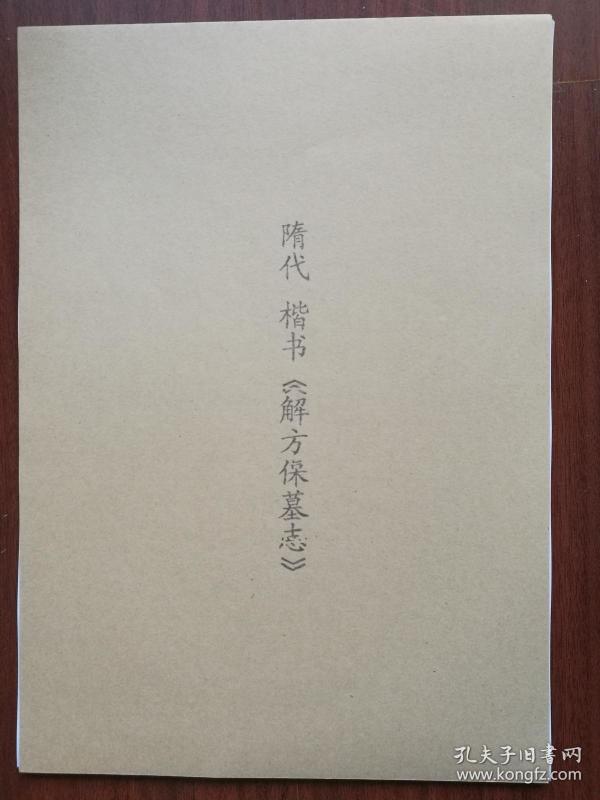 隋代 楷书《解方保墓志》
孔夫子旧書网
www.kongfz.com